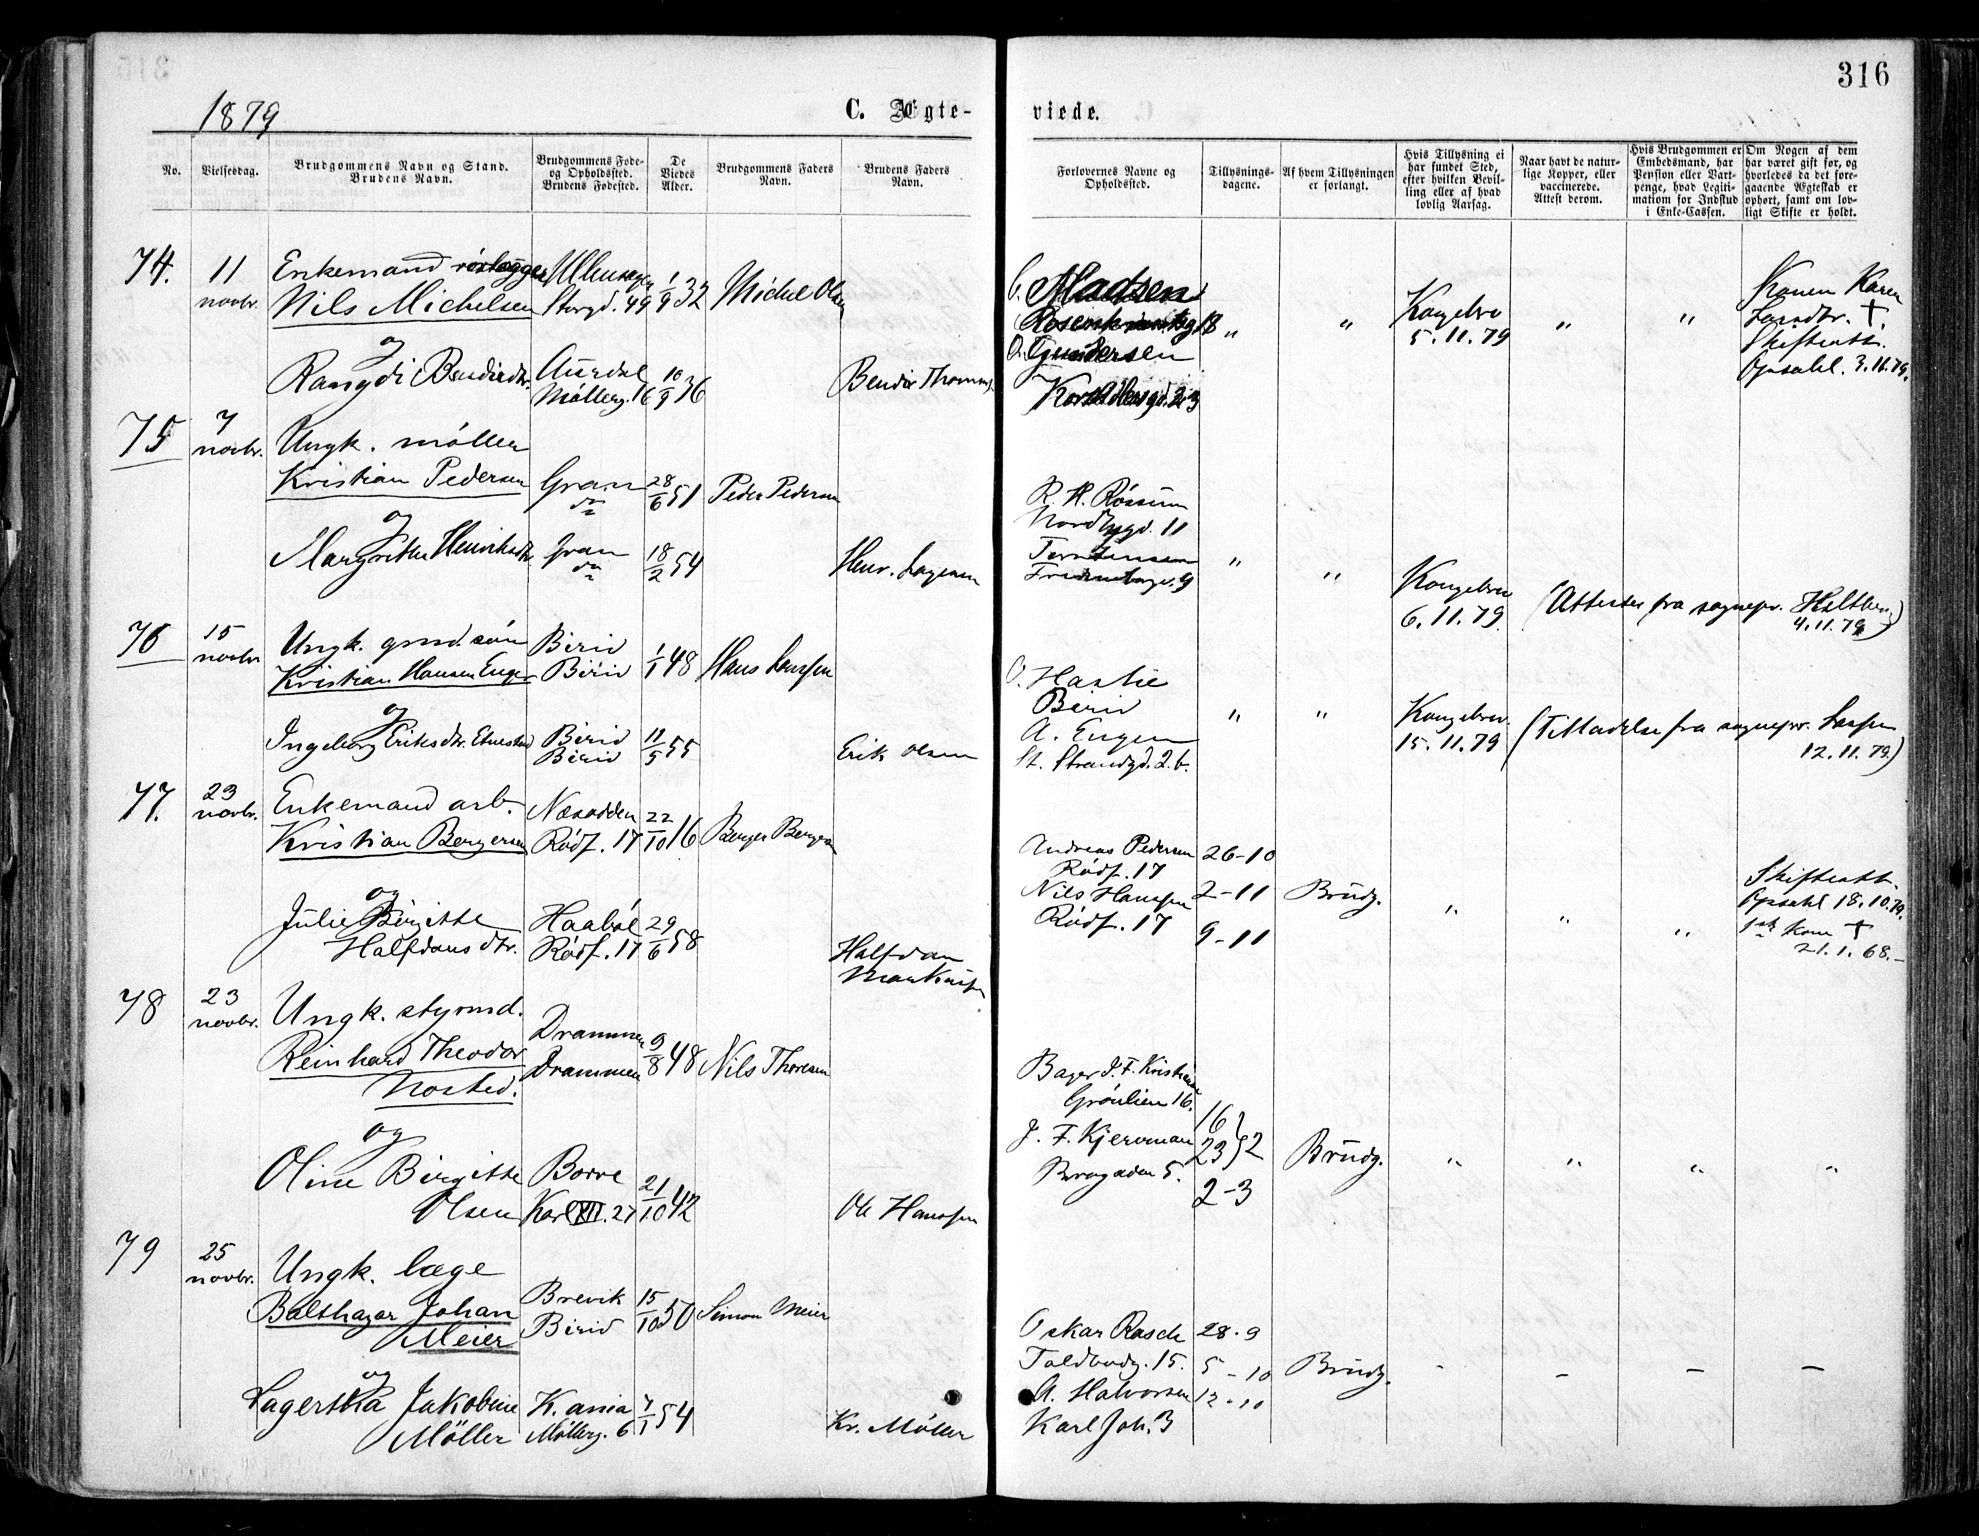 316
1879
C. Ægte-
viede.
No.
Vielsesdag.
Brudgommens Navn og Stand.
Brudens Navn.
Brudgommens Føde-
og Opholdssted.
Brudens Fødested.
De
Viedes
Alder.
Brudgommens Faders
Navn.
Brudens Faders
Navn.
Forlovernes Navne og
Opholdssted.
Tillysnings-
dagene.
Af hvem Tillysningen
er forlangt.
Hvis Tillysning ei
har fundet Sted,
efter hvilken Bevil-
ling eller af hvad
lovlig Aarsag.
Naar havt de natur-
lige Kopper, eller
vaccinerede.
Attest derom.
Hvis Brudgommen er
Embedsmand, har
Pension eller Vart-
penge, hvad Legiti-
mation for Indskud
i Enke-Cassen.
Om Nogen af dem
har været gift før, og
hvorledes da det fore-
gaaende Ægteskab er
ophørt, samt om lov-
ligt Skifte er holdt.
74. 11 novbr.
Enkemand
Nils Michelsen
Storgd. 49 1/9 32 Michel Olsen
og
Aurdal
Møllerg. 16 10/9 36
C. Madsen
Rosenkrantzg 18
O. Gundersen
" " Kongebrev
5.11.79 " "
Konen Karen
Larsdtr. †.
Skifteatt.
Opsahl. 3.11.79.
75 7 novbr.
Ungk. møller
Kristian Pedersen Gran do 28/6 51 Peder Pedersen
og
Gran do 18/2 54
R. H. Røssum
Nordbygd. 11
" " Kongebrev
6.11.79. (Attester fra sognepr.
4.11.79)
76 15 novbr
Ungk. gmd.søn Birid
Kristian Hansen Enger Birid 1/1 48 Hans Larssen
og
Ingeborg Eriksdtr. Birid
Birid 11/5 55 Erik Olsen
O. Hastie
Birid
A. Engen
St. Strandgd. 2.b.
" " Kongebrev.
15.11.79 (Tilladelse fra sognepr.
12.11.79.)
77. 23 novbr.
Enkemand arb. Næsodden
Kristian Bergersen Rødf. 17 22/10 16 Berger Bergersen
og
Julie Birgitte
Halfdans dtr. Rødf. 17 29/6 58
Halfdan
Andreas Pedersen 26-10
Rødf. 17
Nils Hanssen 2-11 Brudg.
Rødf. 17 9-11
" " "
Skifteatt.
Opsahl 18.10.79.
21.1.68.-
78 23 novbr.
Ungk. styrmd. Drammen
Reinhard Theodor Drammen 9/8 48 Nils Thoresen
og
Oline Birgitte Borre
Olsen Karl XII. 27 21/10 42 Ole Hanssen
Bager J. F. Kristiansen
Grønlien 16.
16
J. F. Kjerrman 23 } 2 Brudg.
Brogaden 5. 2-3
" " " "
79 25 novbr.
Ungk. læge
Balthazar Johan Brevik
Meier Birid 15/10 50 Simon Meier
og
Lagertha Jakobine K.ania
Möller Møllerg. 6 7/1 54 Kr. Møller
Oskar Rasch 28.9
Toldbodg. 15. 5-10 Brudg.
A. Halvorsen 12-10
Karl Joh. 3
- - - -